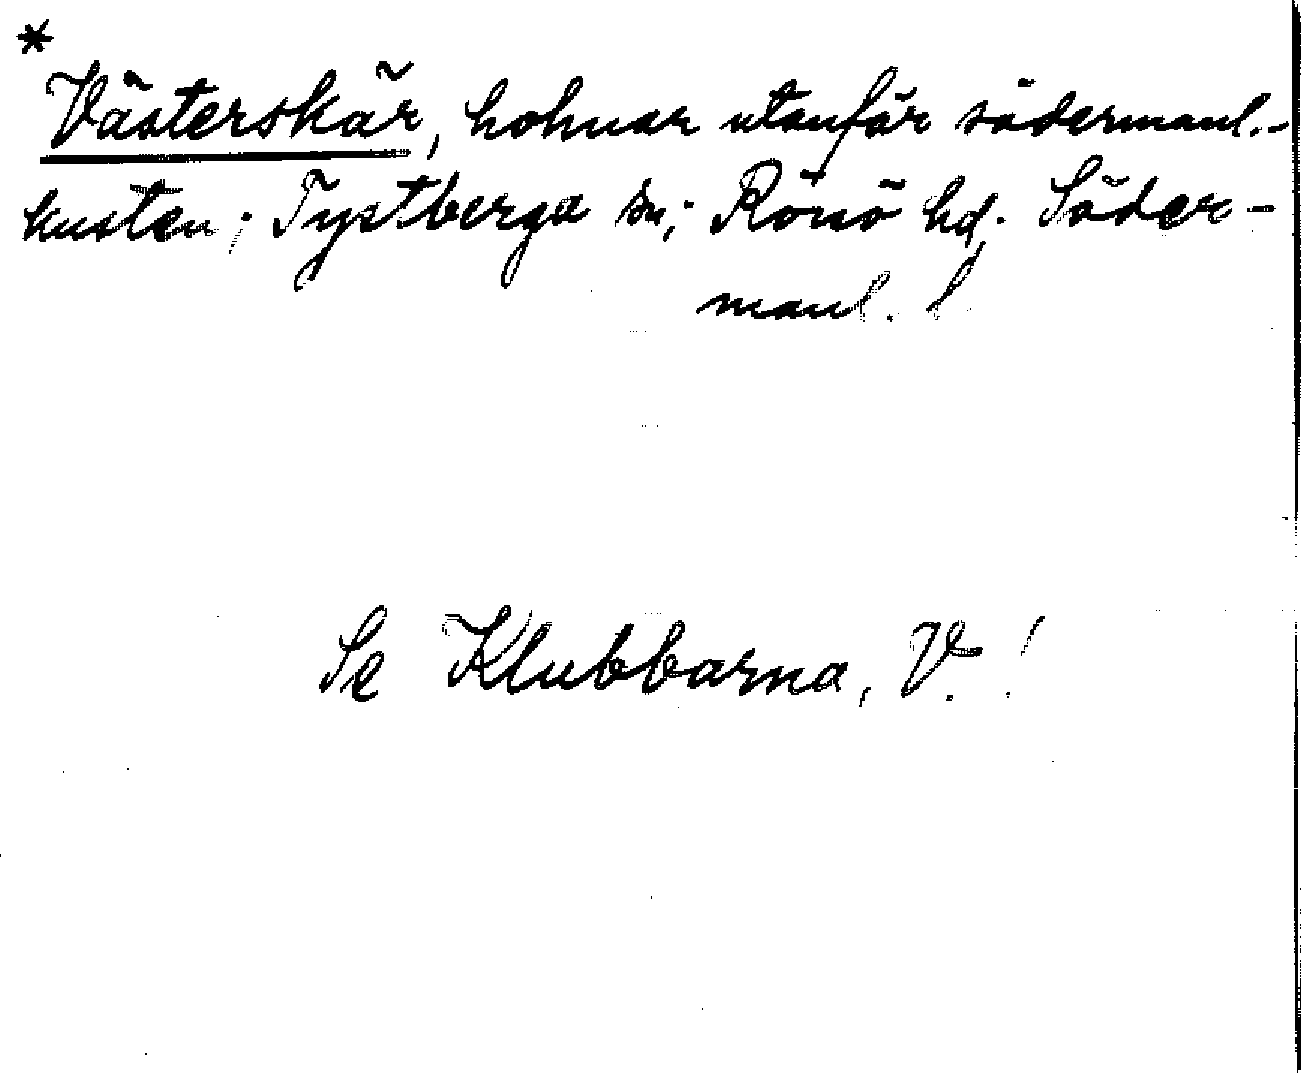 *
Västerskär, holmar utanför södermanl.-
kusten; Tystberga sn; Rönö hd. Söder-
manl. l
Se Klubbarna, V. !